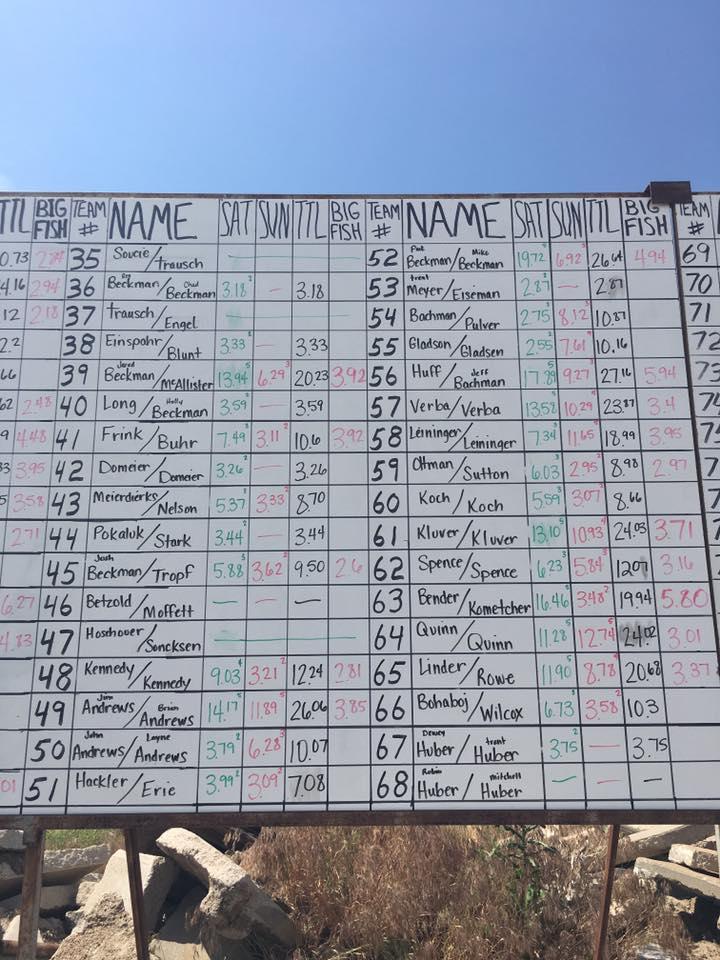 TTL BIG FISH TEAM # NAME SAT SUN TTL BIG FISH TEAM # NAME SAT SUN TTL BIG FISH TEAM #
0.73 35 Soucie/Trausch 52 Pat Beckman/Mike Beckman 19.72 5 6.92 3 26.64 4.94 69
4.16 2.94 36 Beckman/Chad Beckman 3.18 2 — 3.18 53 Trent Meyer/Eiseman 2.87 — 2.87 70
12 2.18 37 Trausch/Engel 54 Bachman/Pulver 2.75 8.12 10.87 71
2.2 38 Einspahr/Blunt 3.33 — 3.33 55 Gladson/Gladsen 2.55 7.61 10.16 72
66 39 Jared Beckman/McAllister 13.94 5 6.29 3 20.23 3.92 56 Huff/Jeff Bachman 17.89 9.27 27.16 5.94 73
62 2.48 40 Long/Holly Beckman 3.59 — 3.59 57 Verba/Verba 13.58 10.29 23.87 3.4 74
9 4.48 41 Frink/Buhr 7.49 3.11 2 10.6 3.92 58 Leininger/Leininger 7.34 11.65 18.99 3.95
33 3.95 42 Domeier/Domeier 3.26 — 3.26 59 Ottman/Sutton 6.03 2.95 8.98 2.97
5 3.58 43 Meierdierks/Nelson 5.37 3.33 2 8.70 60 Koch/Koch 5.59 3.07 8.66
2.71 44 Pokaluk/Stark 3.44 — 3.44 61 Kluver/Kluver 13.10 5 10.93 24.03 3.71
45 Josh Beckman/Tropf 5.88 3.62 2 9.50 2.6 62 Spence/Spence 6.23 5.84 12.07 3.16
6.27 46 Betzold/Moffett — — — 63 Bender/Kometcher 16.46 3.48 2 19.94 5.80
4.83 47 Hoschouer/Soncksen 64 Quinn/Quinn 11.28 5 12.74 24.02 3.01
48 Kennedy/Kennedy 9.03 4 3.21 2 12.24 2.81 65 Linder/Rowe 11.90 5 8.78 20.68 3.37
49 Jim Andrews/Brian Andrews 14.17 5 11.89 5 26.06 3.85 66 Bohaboj/Wilcox 6.73 3 3.58 2 10.3
50 John Andrews/Layne Andrews 3.79 2 6.28 3 10.07 67 Dewey Huber/Trent Huber 3.75 — 3.75
01 51 Hackler/Erie 3.99 2 3.09 2 7.08 68 Robin Huber/Mitchell Huber — — —